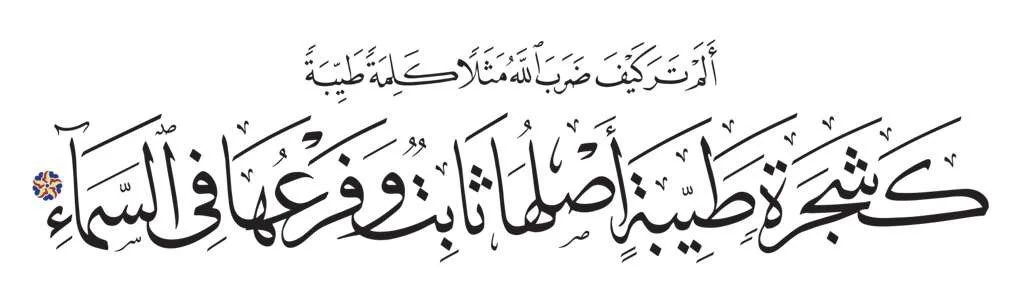 أَلَمْ تَرَ كَيْفَ ضَرَبَ ٱللَّهُ مَثَلًا كَلِمَةً طَيِّبَةً
كَشَجَرَةٍ طَيِّبَةٍ أَصْلُهَا ثَابِتٌ وَفَرْعُهَا فِي ٱلسَّمَآءِ